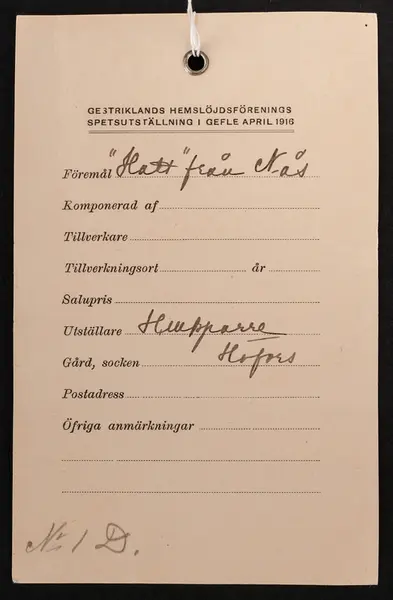 GESTRIKLANDS HEMSLÖJDSFÖRENINGS
SPETSUTSTÄLLNING I GEFLE APRIL 1916
Föremål "Hatt" från Nås
Komponerad af
Tillverkare
Tillverkningsort år
Salupris
Utställare
Gård, socken Hofors
Postadress
Öfriga anmärkningar
Nr 1 D.